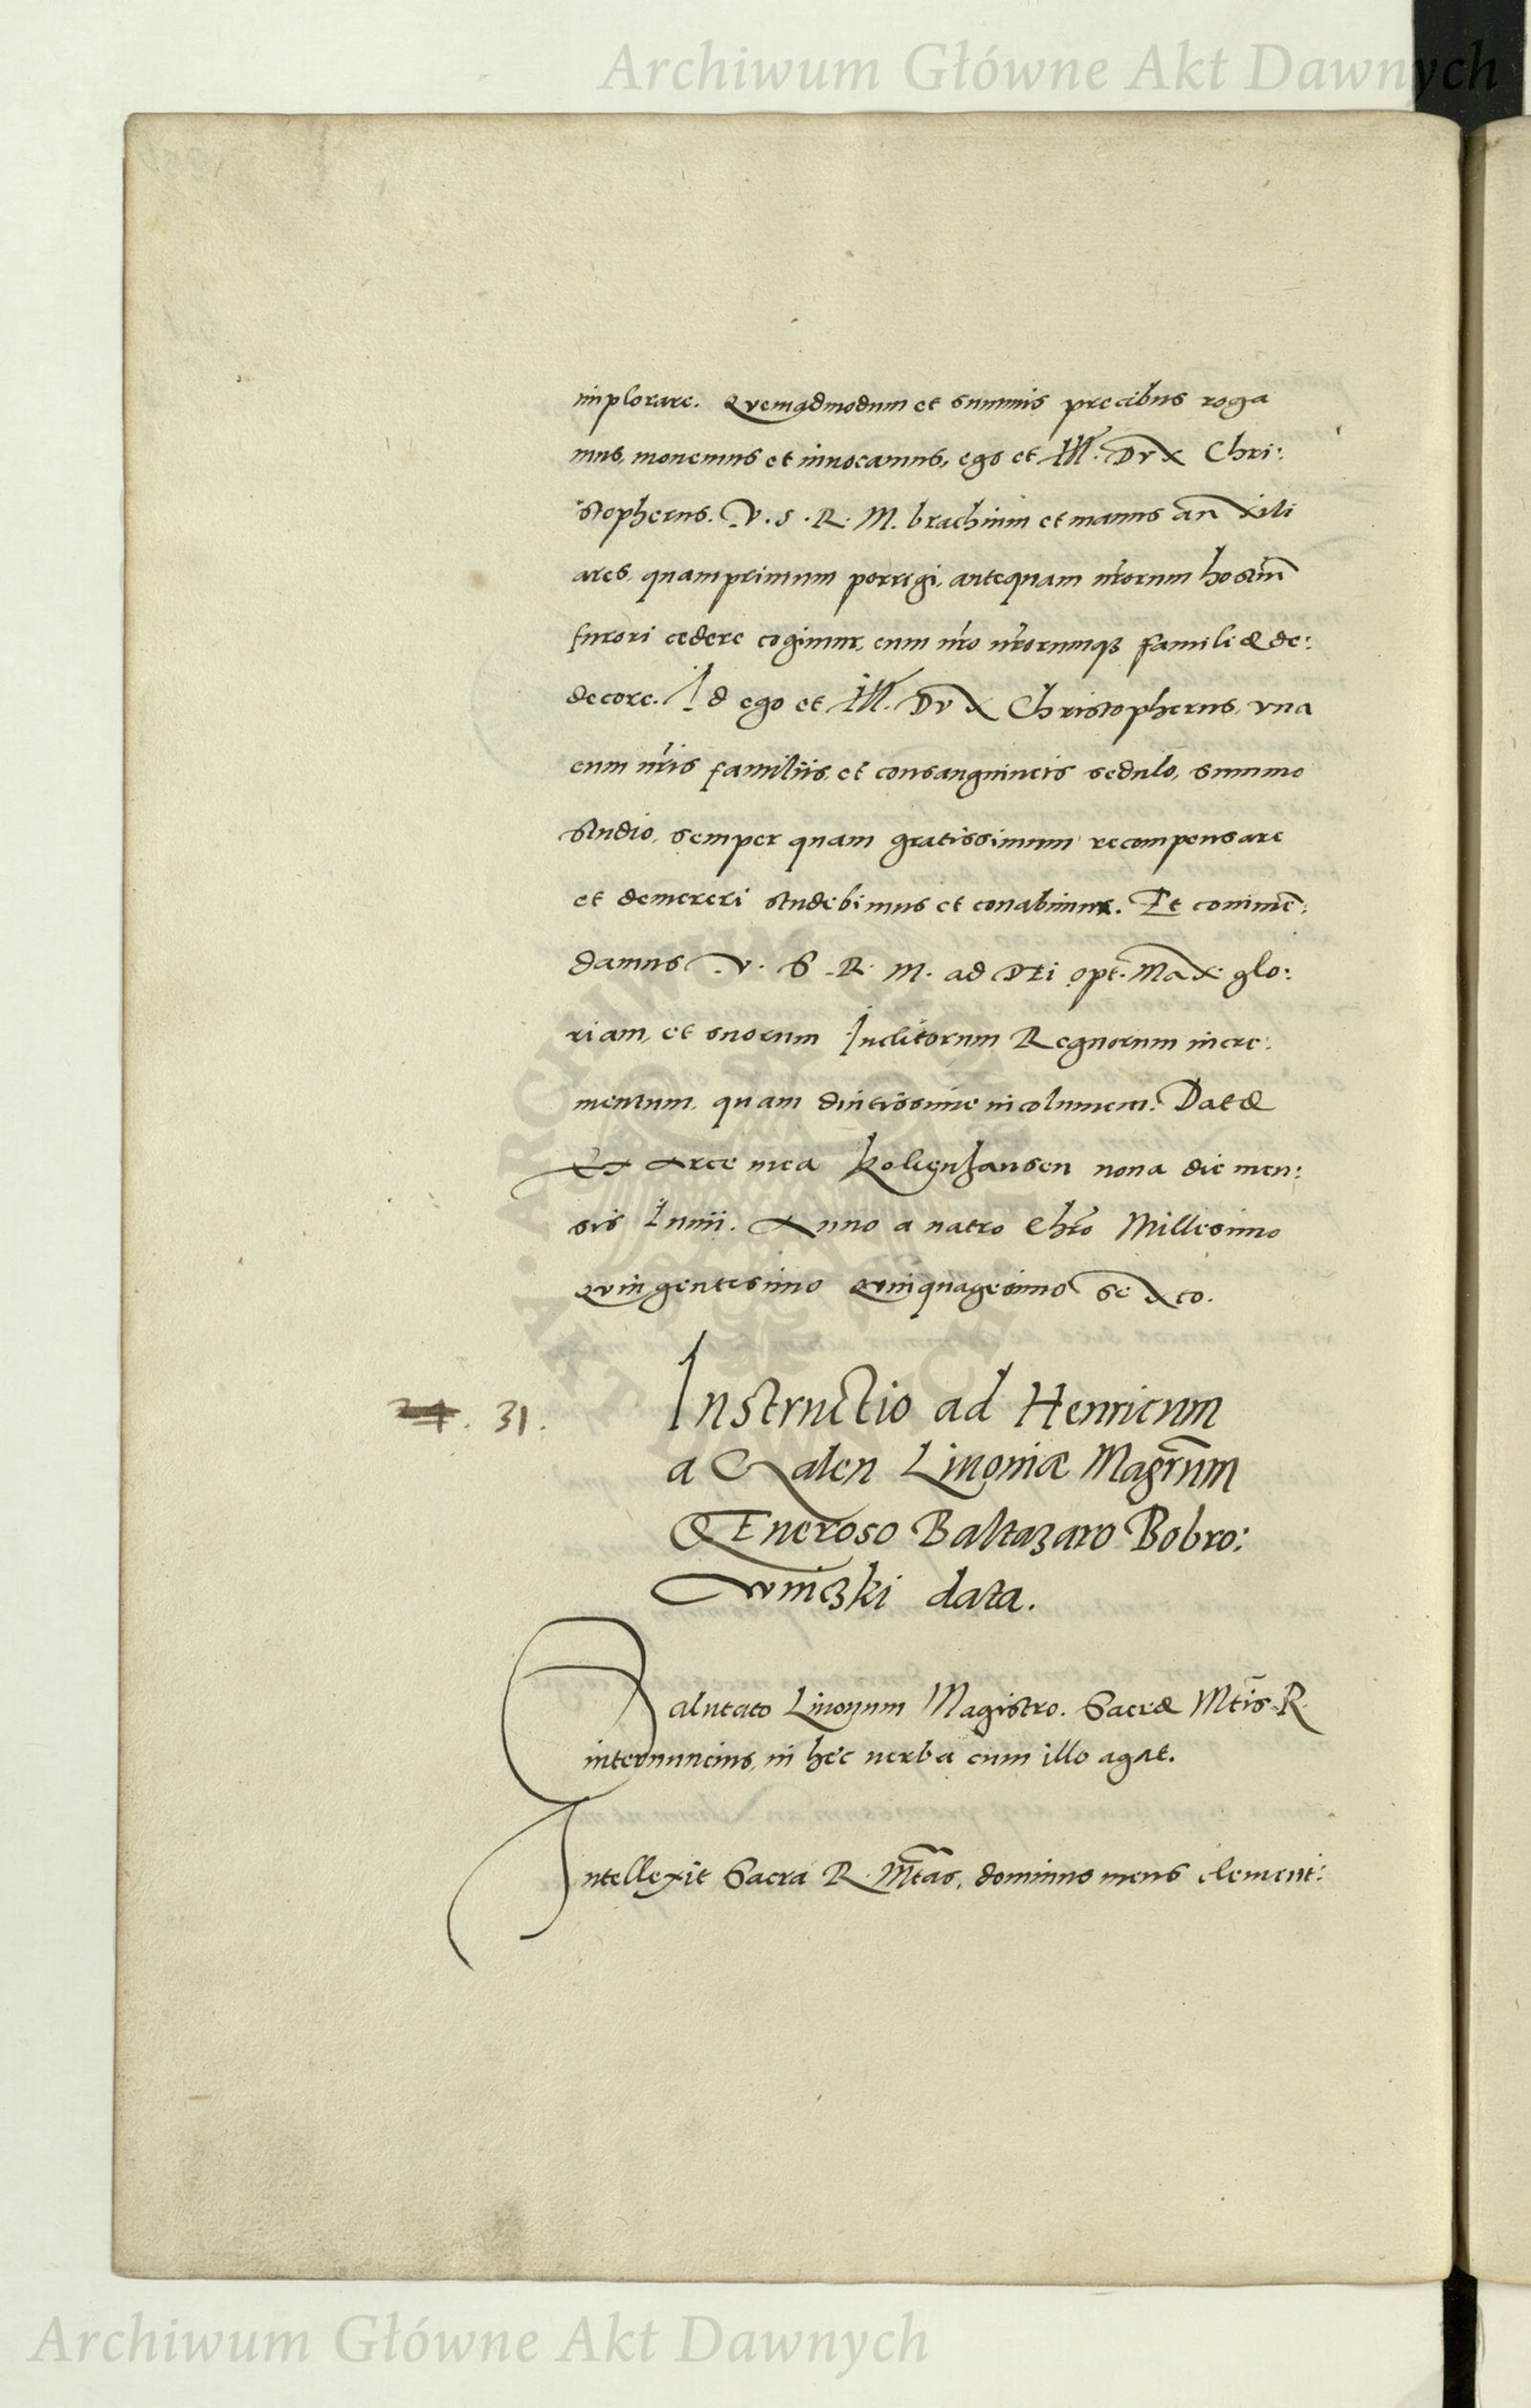 Archiwum Główne Akt Dawnych
implorare. Quemadmodum et summis precibus roga
mus, monemus et inuocamus, ego et Ill. Dux Chri:
stopherus. V. S. R. M. brachium et manus auxili
ares, quamprimum porrigi, antequam nr̃orum hostiũ
furori cedere cogimur, cum nr̃o nr̃orumq3 familiæ de:
decore. Id ego et Ill. Dux Christopherus, vna
cum nr̃is familiis, et consanguineis sedulo, summo
studio, semper quam gratissimum recompensare
et demereri studebimus et conabimur. Et commẽ:
damus V. S. R. M. ad DEi opt. Max: glo:
riam, et suorum Inclitorum Regnorum incre:
mentum, quam diutissime incolumem. Datæ
Ex Arce mea Kokenhausen nona die men:
sis Iunii. Anno a nato Chr̃o Millesimo
Quingentesimo Quinquagesimo Sexto.
24. 31. Instructio ad Henricum
a Galen Liuoniæ Magr̃um
GEneroso Baltazaro Bobro:
wniczki data.
Salutato Liuonum Magistro. Sacræ Mtis R.
internuncius, in hec uerba cum illo agat.
Intellexit Sacra R. Mtas, dominus meus clement:
ARCHIWUM GŁÓWNE AKT DAWNYCH
Archiwum Główne Akt Dawnych